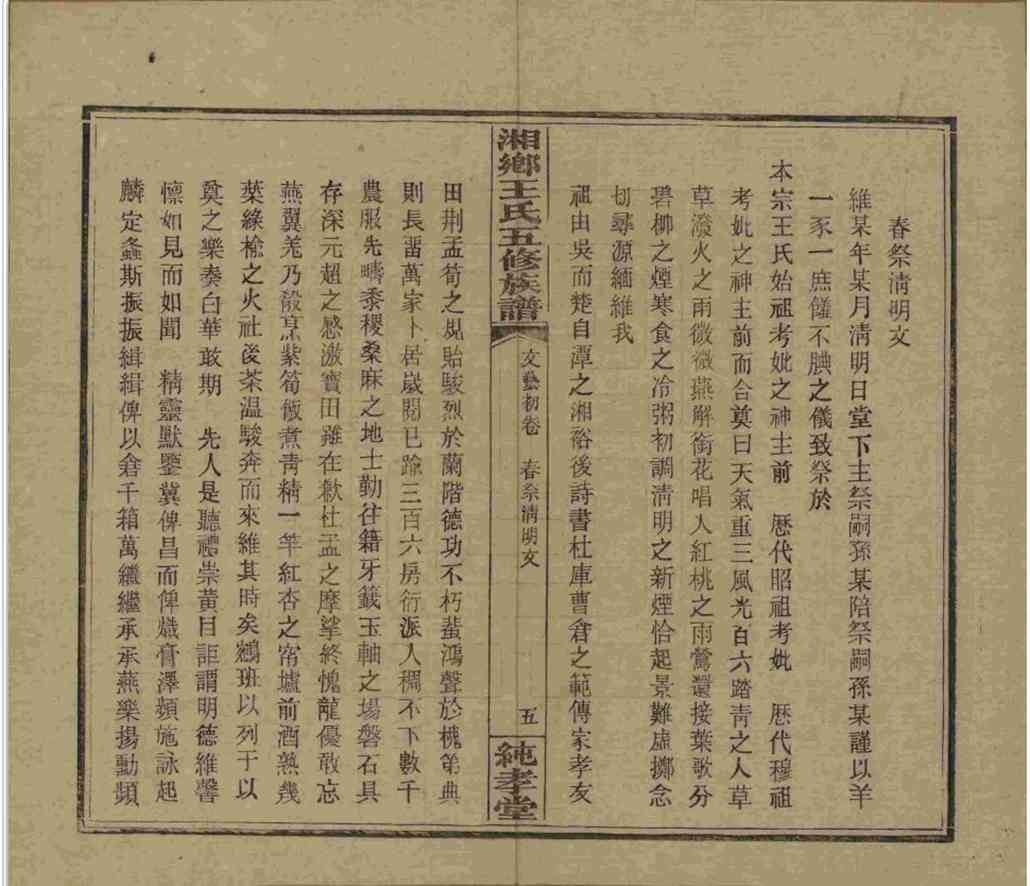 春祭淸明文
維某年某月淸明日堂下主祭嗣孫某陪祭嗣孫某謹以羊
一豕一庶饈不腆之儀致祭於
本宗王氏始祖考妣之神主前　歷代昭祖考妣　歷代穆祖
考妣之神主前而合奠曰天氣重三風光百六踏靑之人草
草潑火之雨微微燕解銜花唱人紅桃之雨鶯還接葉歌分
碧柳之煙寒食之冷粥初調淸明之新煙恰起景難虛擲念
切尋源緬維我
祖由吳而楚自潭之湘裕後詩書杜庫曹倉之範傳家孝友
湘鄉王氏五修族譜
文藝初卷　春祭淸明文
五
純孝堂
田荆孟筍之規貽駿烈於蘭階德功不朽蜚鴻聲於槐第典
則長畱萬家卜居歲閱已踰三百六房衍派人稠不下數千
農服先疇黍稷桑麻之地士勤往籍牙籤玉軸之場磐石具
存深元超之感激寶田雖在歉杜孟之摩挲終愧龍優敢忘
燕翼羌乃殽烹紫筍飯煮靑精一竿紅杏之帘壚前酒熟幾
葉綠榆之火社後茶温駿奔而來維其時矣鵷班以列于以
奠之樂奏白華敢期　先人是聽禮崇黃目詎謂明德維馨
懷如見而如聞　精靈默鑒冀俾昌而俾熾膏澤頻施詠起
麟定螽斯振振緝緝俾以倉千箱萬繼繼承承燕樂揚勳頻